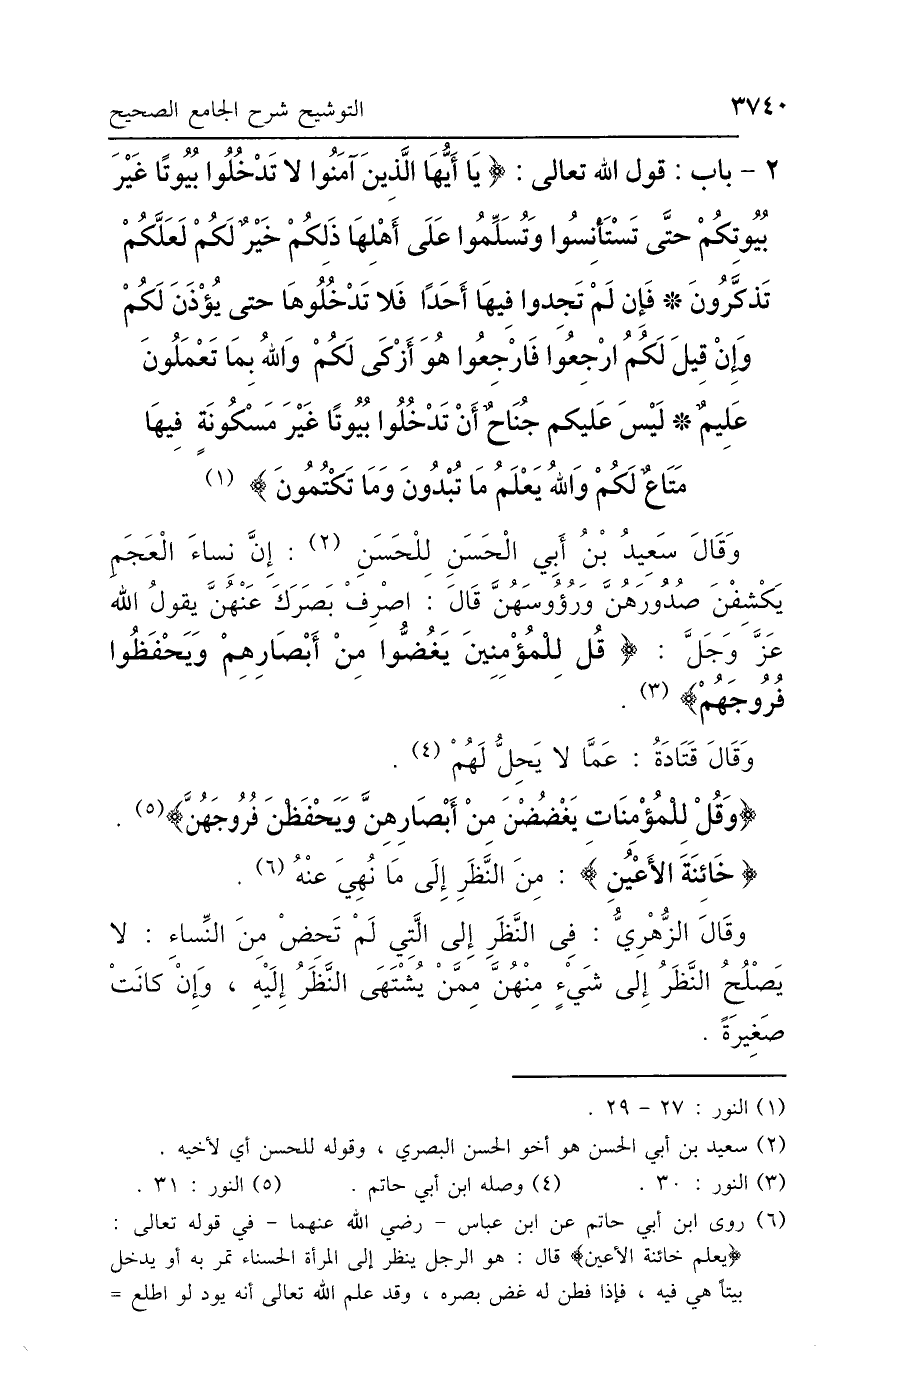 ٣٧٤٠ التوشيح شرح الجامع الصحيح
٢ - باب : قول الله تعالى : ﴿ يَا أَيُّهَا الَّذِينَ آمَنُوا لا تَدْخُلُوا بُيُوتًا غَيْرَ
بُيُوتِكُمْ حتَّى تَسْتَأْنِسُوا وَتُسَلِّمُوا عَلَى أَهْلِهَا ذَلِكُمْ خَيْرٌ لَكُمْ لَعَلَّكُمْ
تَذكَّرُونَ * فَإِن لَمْ تَجِدوا فِيهَا أَحَدًا فَلا تَدْخُلُوهَا حتى يُؤْذَنَ لَكُمْ
وَإِنْ قِيلَ لَكُمُ ارْجِعُوا فَارْجِعُوا هُوَ أَزْكَى لَكُمْ وَاللهُ بِمَا تَعْمَلُونَ
عَلِيمٌ * لَيْسَ عَليكم جُنَاحٌ أَنْ تَدْخُلُوا بُيُوتًا غَيْرَ مَسْكُونَةٍ فِيهَا
مَتَاعٌ لَكُمْ وَاللهُ يَعْلَمُ مَا تُبْدُونَ وَمَا تَكْتُمُونَ ﴾ (١)
وَقَالَ سَعِيدُ بْنُ أَبِي الْحَسَنِ لِلْحَسَنِ (٢) : إِنَّ نساءَ الْعَجَمِ
يَكْشِفْنَ صُدُورَهُنَّ وَرُؤُوسَهُنَّ قَالَ : اصْرِفْ بَصَرَكَ عَنْهُنَّ يقولُ الله
عَزَّ وَجَلَّ : ﴿ قُل لِلْمُؤْمِنِينَ يَغُضُّوا مِنْ أَبْصَارِهِمْ وَيَحْفَظُوا
فُرُوجَهُمْ﴾ (٣) .
وَقَالَ قَتَادَةُ : عَمَّا لا يَحِلُّ لَهُمْ (٤) .
﴿وَقُلْ لِلْمُؤْمِنَاتِ يَغْضُضْنَ مِنْ أَبْصَارِهِنَّ وَيَحْفَظْنَ فُرُوجَهُنَّ﴾(٥) .
﴿ خَائِنَةَ الأَعْيُنِ ﴾ : مِنَ النَّظَرِ إِلَى مَا نُهِيَ عَنْهُ (٦) .
وقَالَ الزُّهْرِيُّ : فِى النَّظَرِ إلى الَّتِي لَمْ تَحِضْ مِنَ النِّساءِ : لا
يَصْلُحُ النَّظَرُ إلى شَيْءٍ مِنْهُنَّ مِمَّنْ يُشْتَهَى النَّظَرُ إِلَيْهِ ، وَإِنْ كانَتْ
صَغِيرَةً .
(١) النور : ٢٧ - ٢٩ .
(٢) سعيد بن أبي الحسن هو أخو الحسن البصري ، وقوله للحسن أي لأخيه .
(٣) النور : ٣٠ . (٤) وصله ابن أبي حاتم . (٥) النور : ٣١ .
(٦) روى ابن أبي حاتم عن ابن عباس - رضي الله عنهما - في قوله تعالى :
﴿يعلم خائنة الأعين﴾ قال : هو الرجل ينظر إلى المرأة الحسناء تمر به أو يدخل
بيتاً هي فيه ، فإذا فطن له غض بصره ، وقد علم الله تعالى أنه يود لو اطلع =